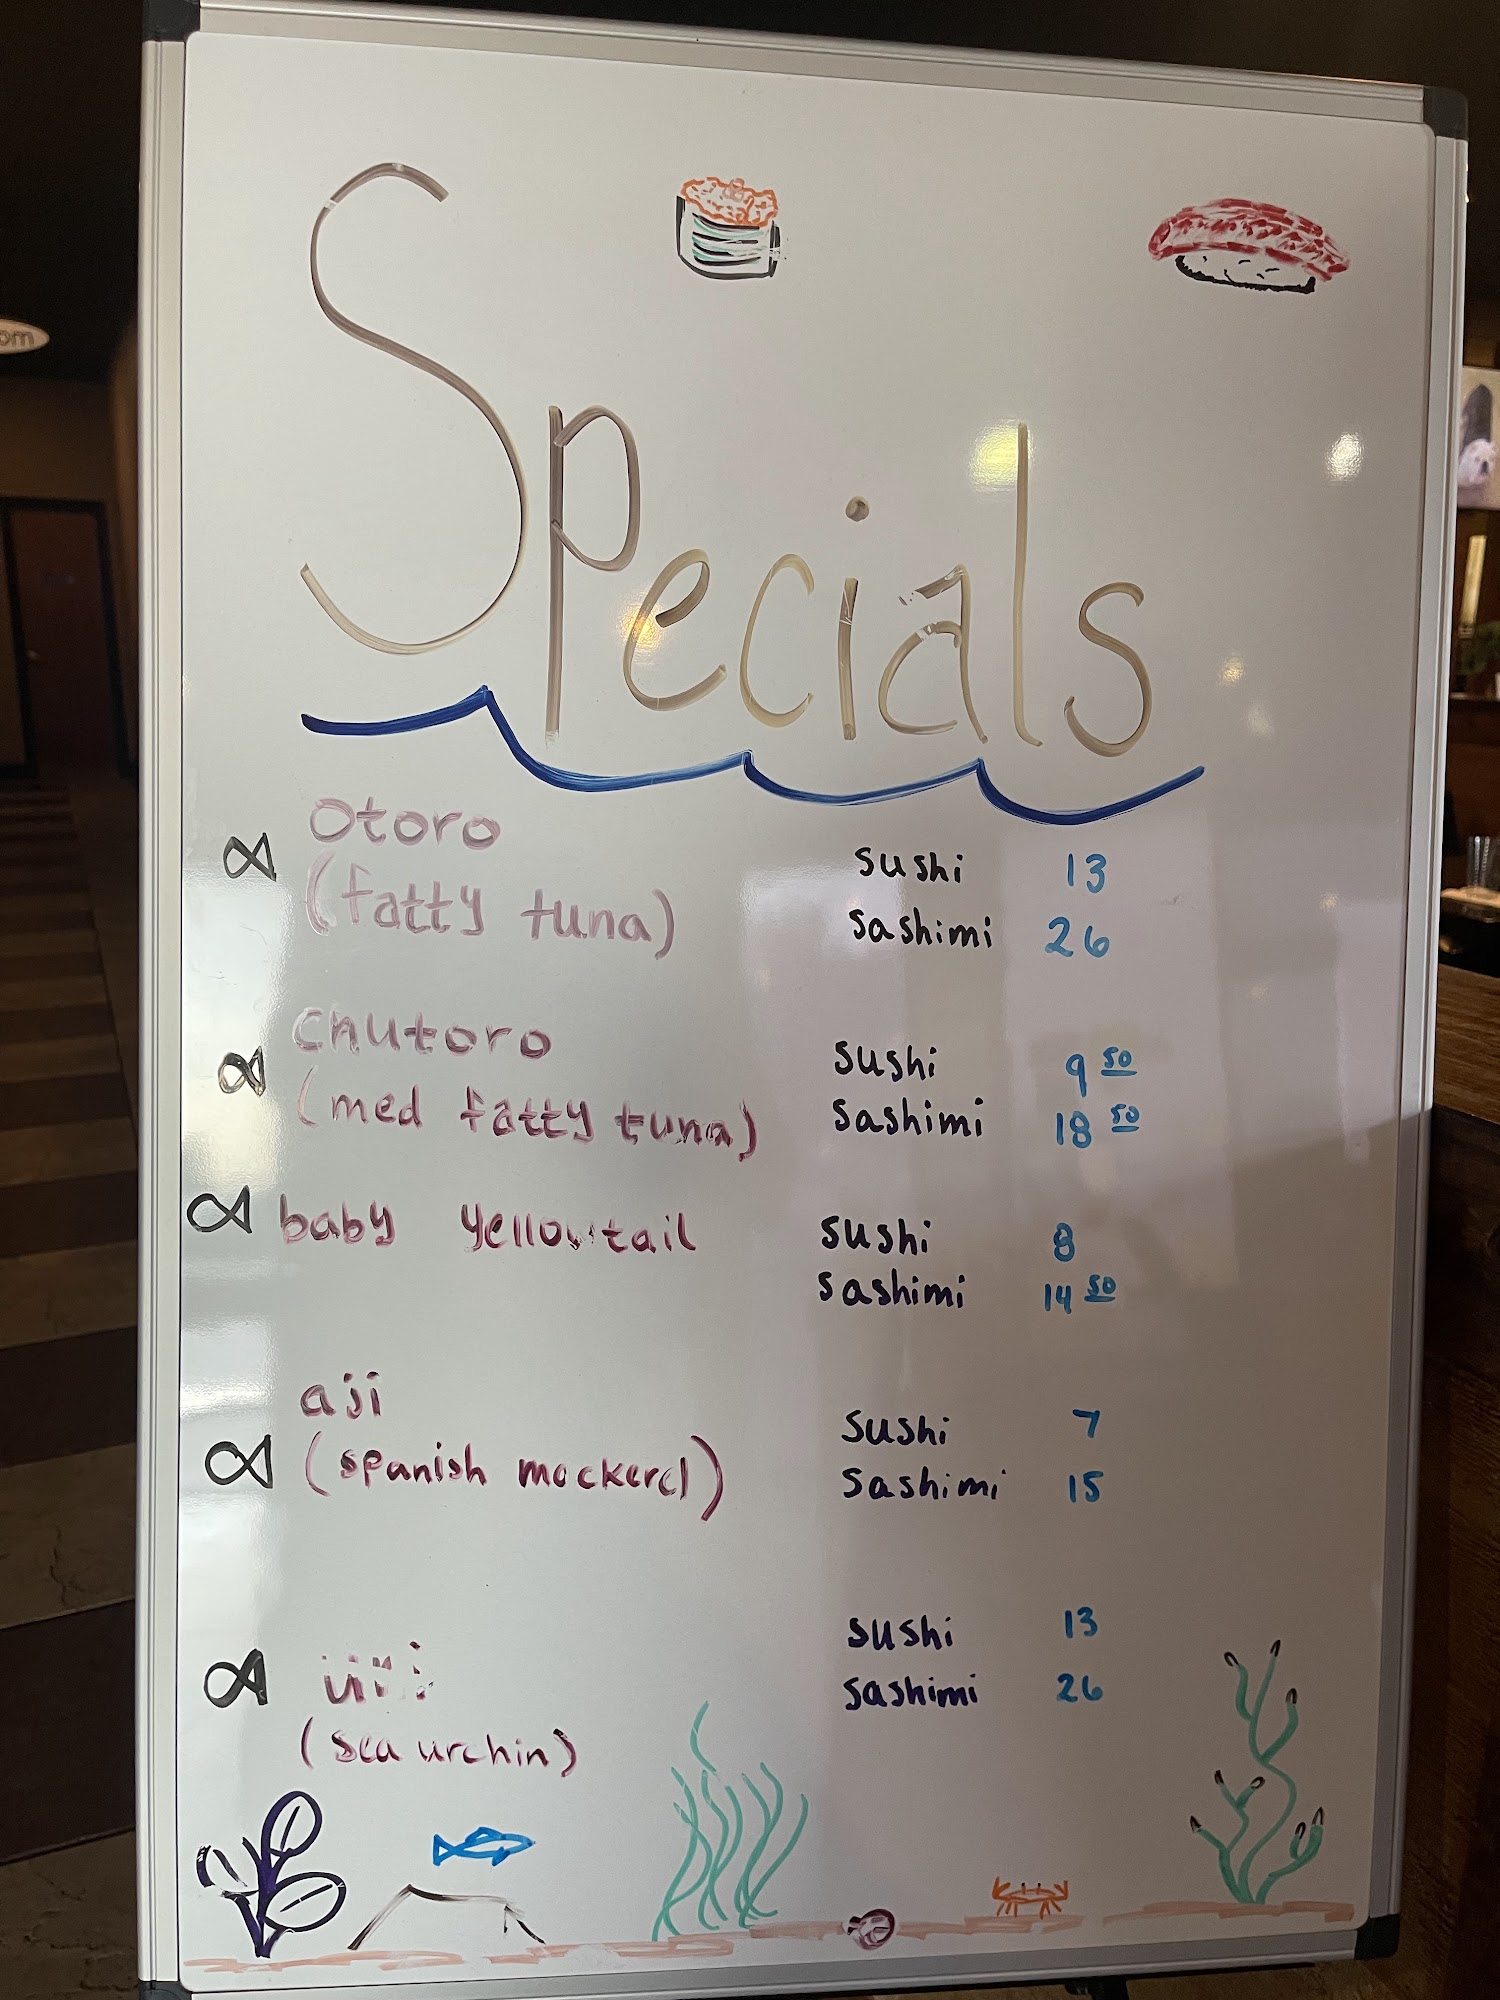 Specials
otoro
(fatty tuna)
sushi 13
sashimi 26
chutoro
(med fatty tuna)
sushi 9 50
sashimi 18 50
baby yellowtail
sushi 8
sashimi 14 50
aji
(spanish mackerel)
sushi 7
sashimi 15
uni
(sea urchin)
sushi 13
sashimi 26
om